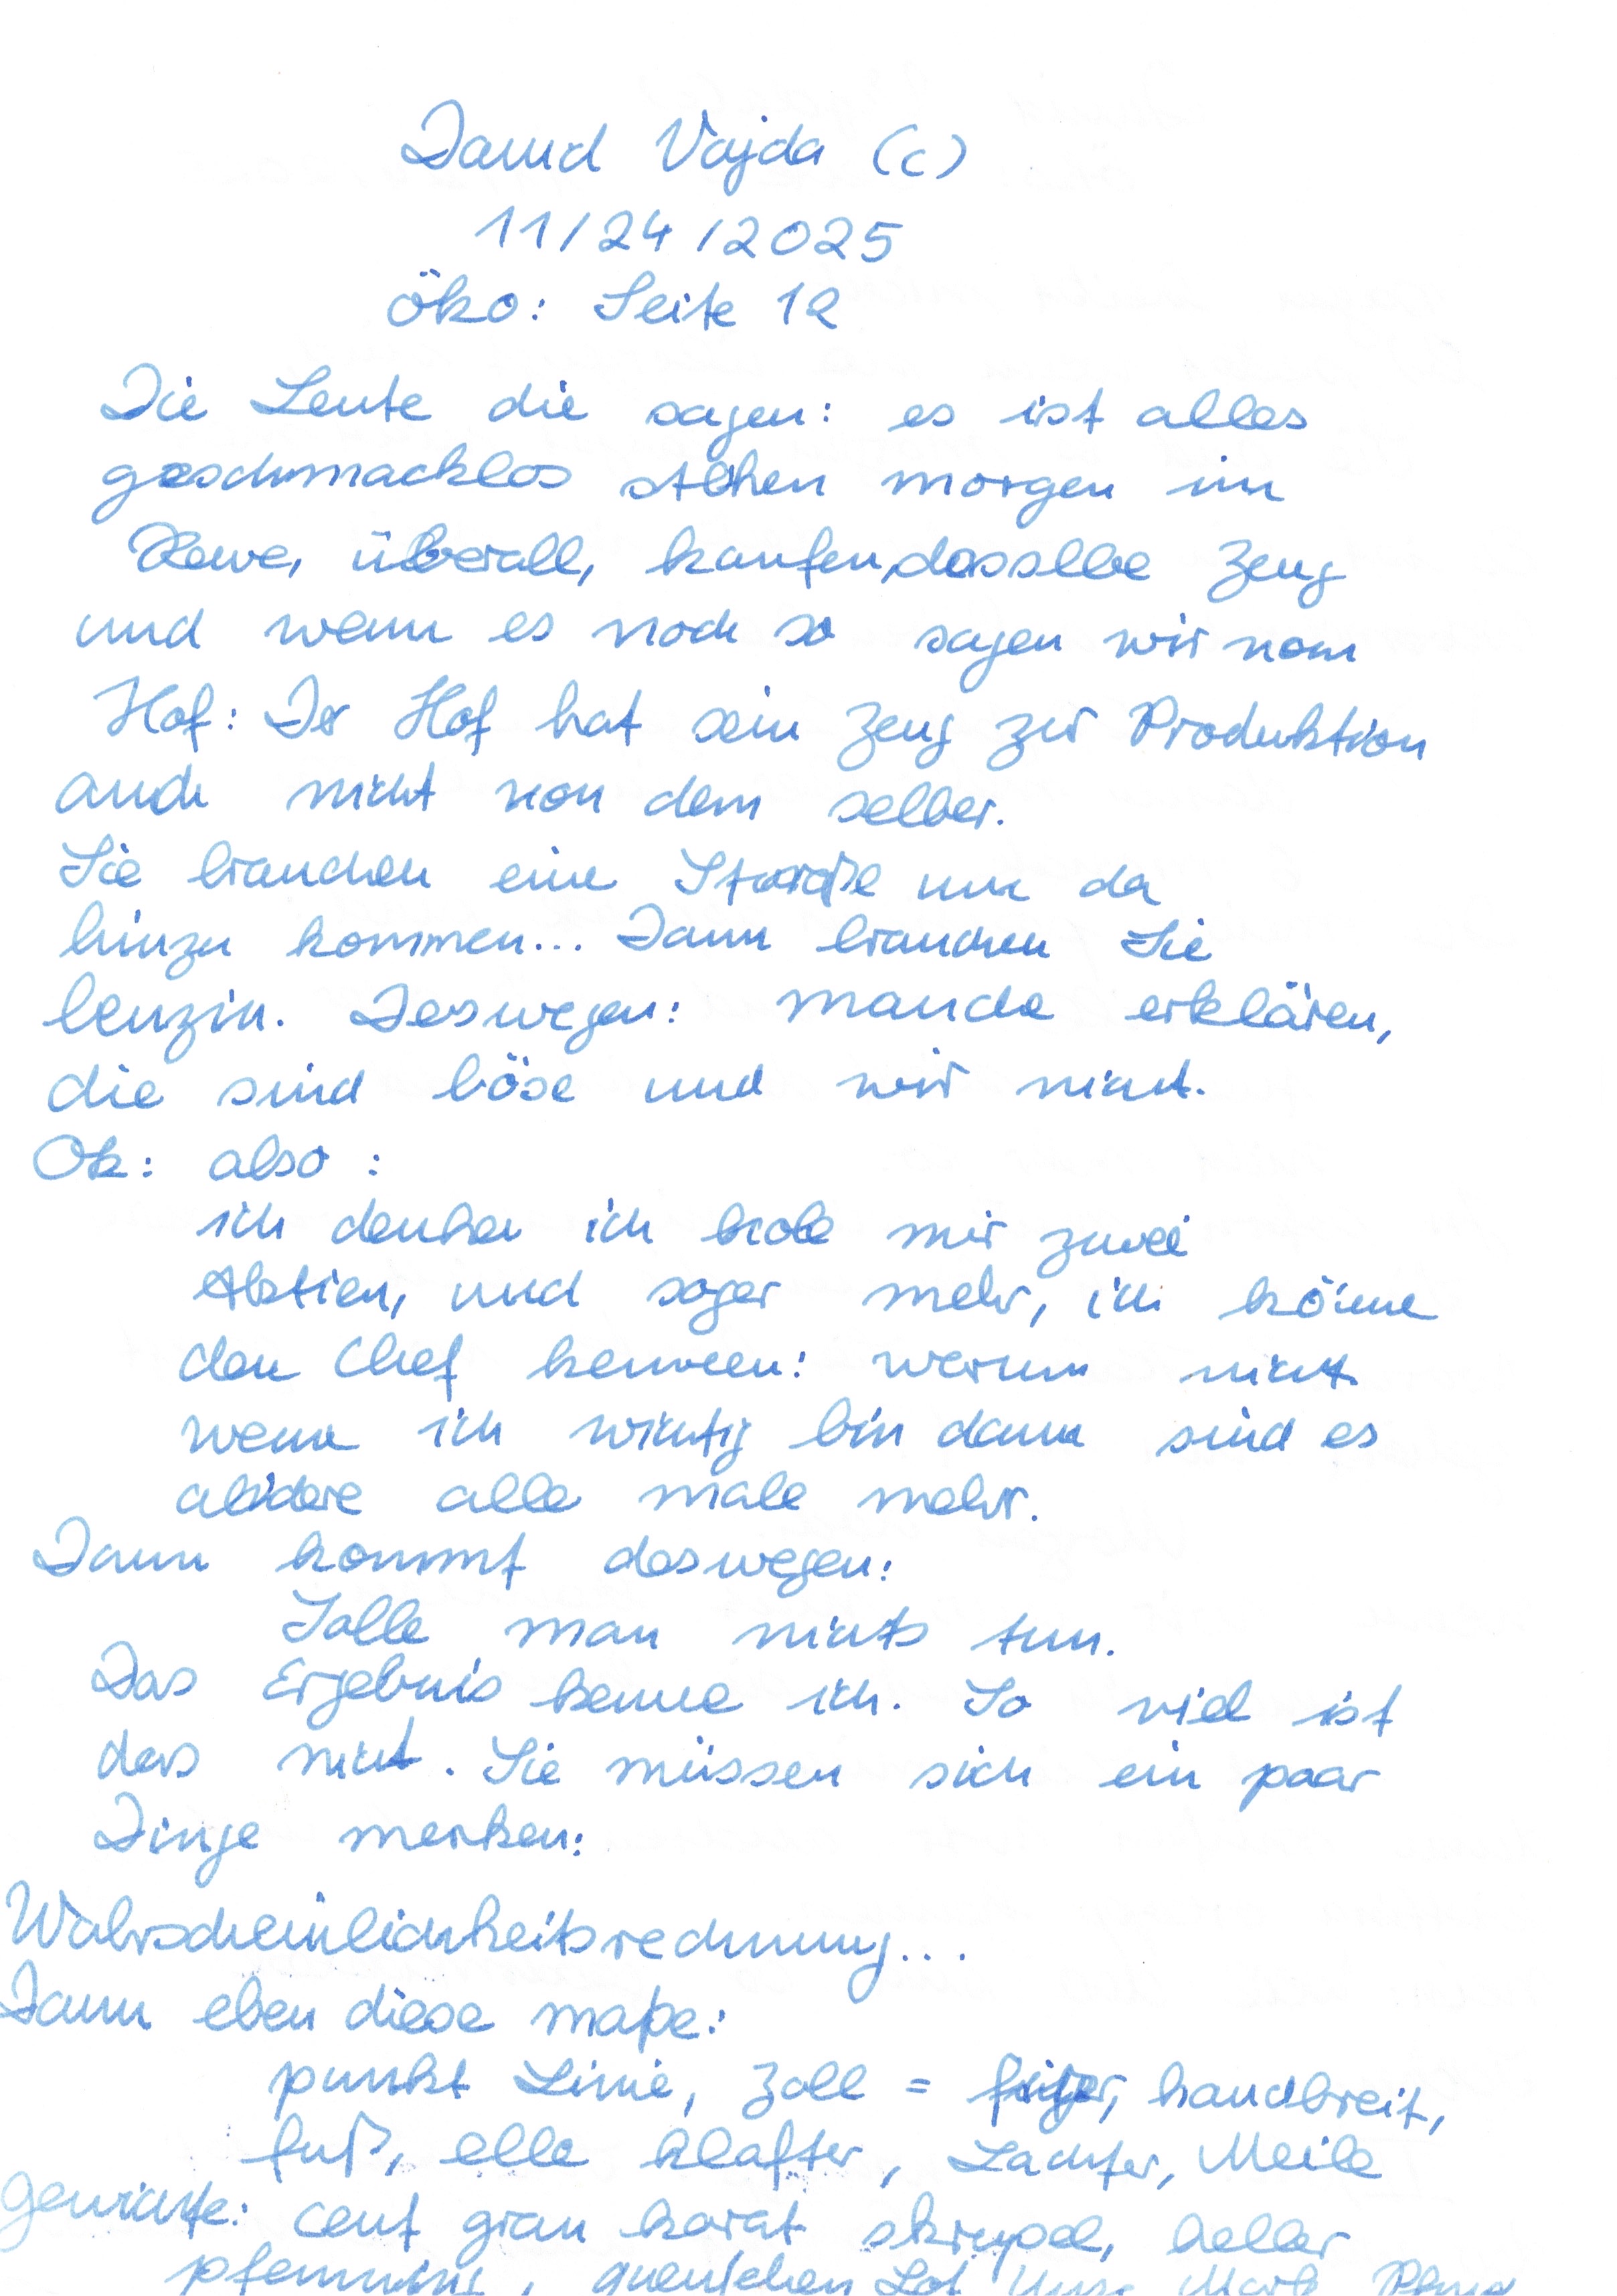 David Vajda (c)
11/24/2025
Öko: Seite 12
Die Leute die sagen: es ist alles
geschmacklos stehen morgen im
Rewe, überall, kaufen, dasselbe Zeug
und wenn es noch so sagen wir vom
Hof: Der Hof hat sein Zeug zur Produktion
auch nicht von dem selber.
Sie brauchen eine Straße um da
hinzu kommen... Dann brauchen Sie
benzin. Deswegen: manche erklären,
die sind böse und wir nicht.
Ok: also:
ich denke ich hole mir zwei
Aktien, und sogar mehr, ich könne
den Chef kennen: warum nicht
wenn ich wichtig bin dann sind es
andere alle male mehr.
Dann kommt deswegen:
Solle man nichts tun.
Das Ergebnis kenne ich. So viel ist
das nicht. Sie müssen sich ein paar
Dinge merken:
Wahrscheinlichkeitsrechnung...
Dann eben diese maße:
punkt Linie, Zoll = finger, handbreit,
fuß, elle klafter, Lachter, Meile
Gewichte: cent gran karat skrupel, heller
pfennig, quentchen Lot Unze Mark